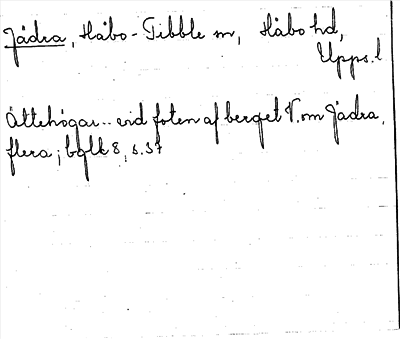 Jädra, Håbo-Tibble sn, Håbo hd,
Upps. l
Ättehögar .. vid foten af berget V. om Jädra,
flera; bglk 8, s. 37